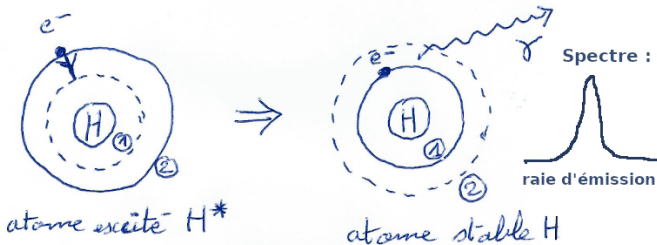 e⁻
H
1
2
atome excité H*
⇒
e⁻
γ
H
1
2
atome stable H
Spectre :
raie d'émission